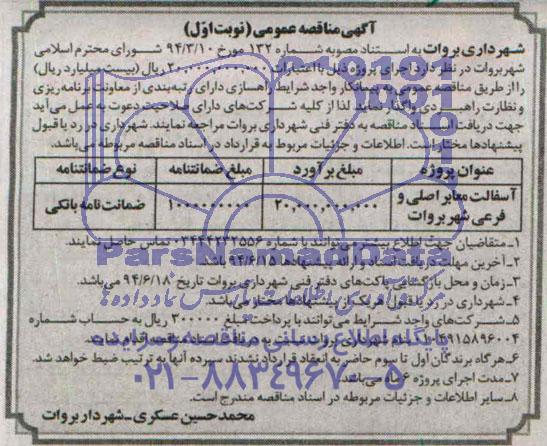 آگهی مناقصه عمومی (نوبت اول)
شهرداری بروات به استناد مصوبه شماره ۱۳۲ مورخ ۹۴/۳/۱۰ شورای محترم اسلامی
شهر بروات در نظر دارد اجرای پروژه ذیل با اعتبارات ۲۰,۰۰۰,۰۰۰,۰۰۰ ریال (بیست میلیارد ریال)
را از طریق مناقصه عمومی به پیمانکار واجد شرایط راهسازی دارای رتبه‌بندی از معاونت برنامه‌ریزی
و نظارت راهبردی واگذار نماید. لذا از کلیه شرکت‌های دارای صلاحیت دعوت به عمل می‌آید
جهت دریافت اسناد مناقصه به دفتر فنی شهرداری بروات مراجعه نمایند. شهرداری در رد یا قبول
پیشنهادها مختار است. اطلاعات و جزئیات مربوط به قرارداد در اسناد مناقصه مربوطه می‌باشد.
عنوان پروژه مبلغ برآورد مبلغ ضمانتنامه نوع ضمانتنامه
آسفالت معابر اصلی و فرعی شهر بروات ۲۰,۰۰۰,۰۰۰,۰۰۰ ۱۰۰۰۰۰۰۰۰۰ ضمانت نامه بانکی
۱ـ متقاضیان جهت اطلاع بیشتر می‌توانند با شماره ۰۳۴۴۴۲۳۲۵۵۶ تماس حاصل نمایند.
۲ـ آخرین مهلت دریافت اسناد و ارائه پیشنهادها ۹۴/۶/۱۵ می‌باشد.
۳ـ زمان و محل بازگشایی پاکت‌های دفتر فنی شهرداری بروات تاریخ ۹۴/۶/۱۸ می‌باشد.
۴ـ شهرداری در رد یا قبول هریک از پیشنهادها مختار می‌باشد.
۵ـ شرکت‌های واجد شرایط می‌توانند با پرداخت مبلغ ۳۰۰۰۰۰ ریال به حساب شماره
بنام شهرداری بروات نسبت به دریافت اسناد مناقصه اقدام نمایند.
۶ـ هرگاه برندگان اول تا سوم حاضر به انعقاد قرارداد نشدند سپرده آنها به ترتیب ضبط خواهد شد.
۷ـ مدت اجرای پروژه ۶ ماه می‌باشد.
۸ـ سایر اطلاعات و جزئیات مربوطه در اسناد مناقصه مندرج است.
محمدحسین عسکری ـ شهردار بروات
پایگاه اطلاع رسانی مناقصه و مزایده
۰۲۱-۸۸۳۴۹۶۷۰-۵